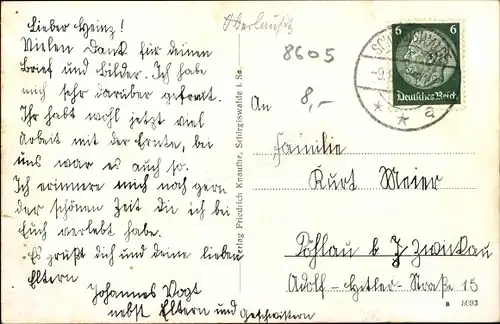 Lieber Heinz!
Vielen Dank für deinen
Brief und Bilder. Ich habe
mich sehr darüber gefreut.
Ihr habt wohl jetzt viel
Arbeit mit der Ernte, bei
uns war es auch so.
Ich erinnere mich noch gern
der schönen Zeit die ich bei
Euch verlebt habe.
Es grüßt dich und deine lieben
Eltern
Johannes Vogt
nebst Eltern und Geschwistern
Oberlausitz
8605
8,-
Verlag Friedrich Knauthe, Schirgiswalde i. Sa.
6 6
Deutsches Reich
a
An
Familie
Kurt Meier
Pöhlau b Zwickau
Adolf-Hitler-Straße 15
a 5093